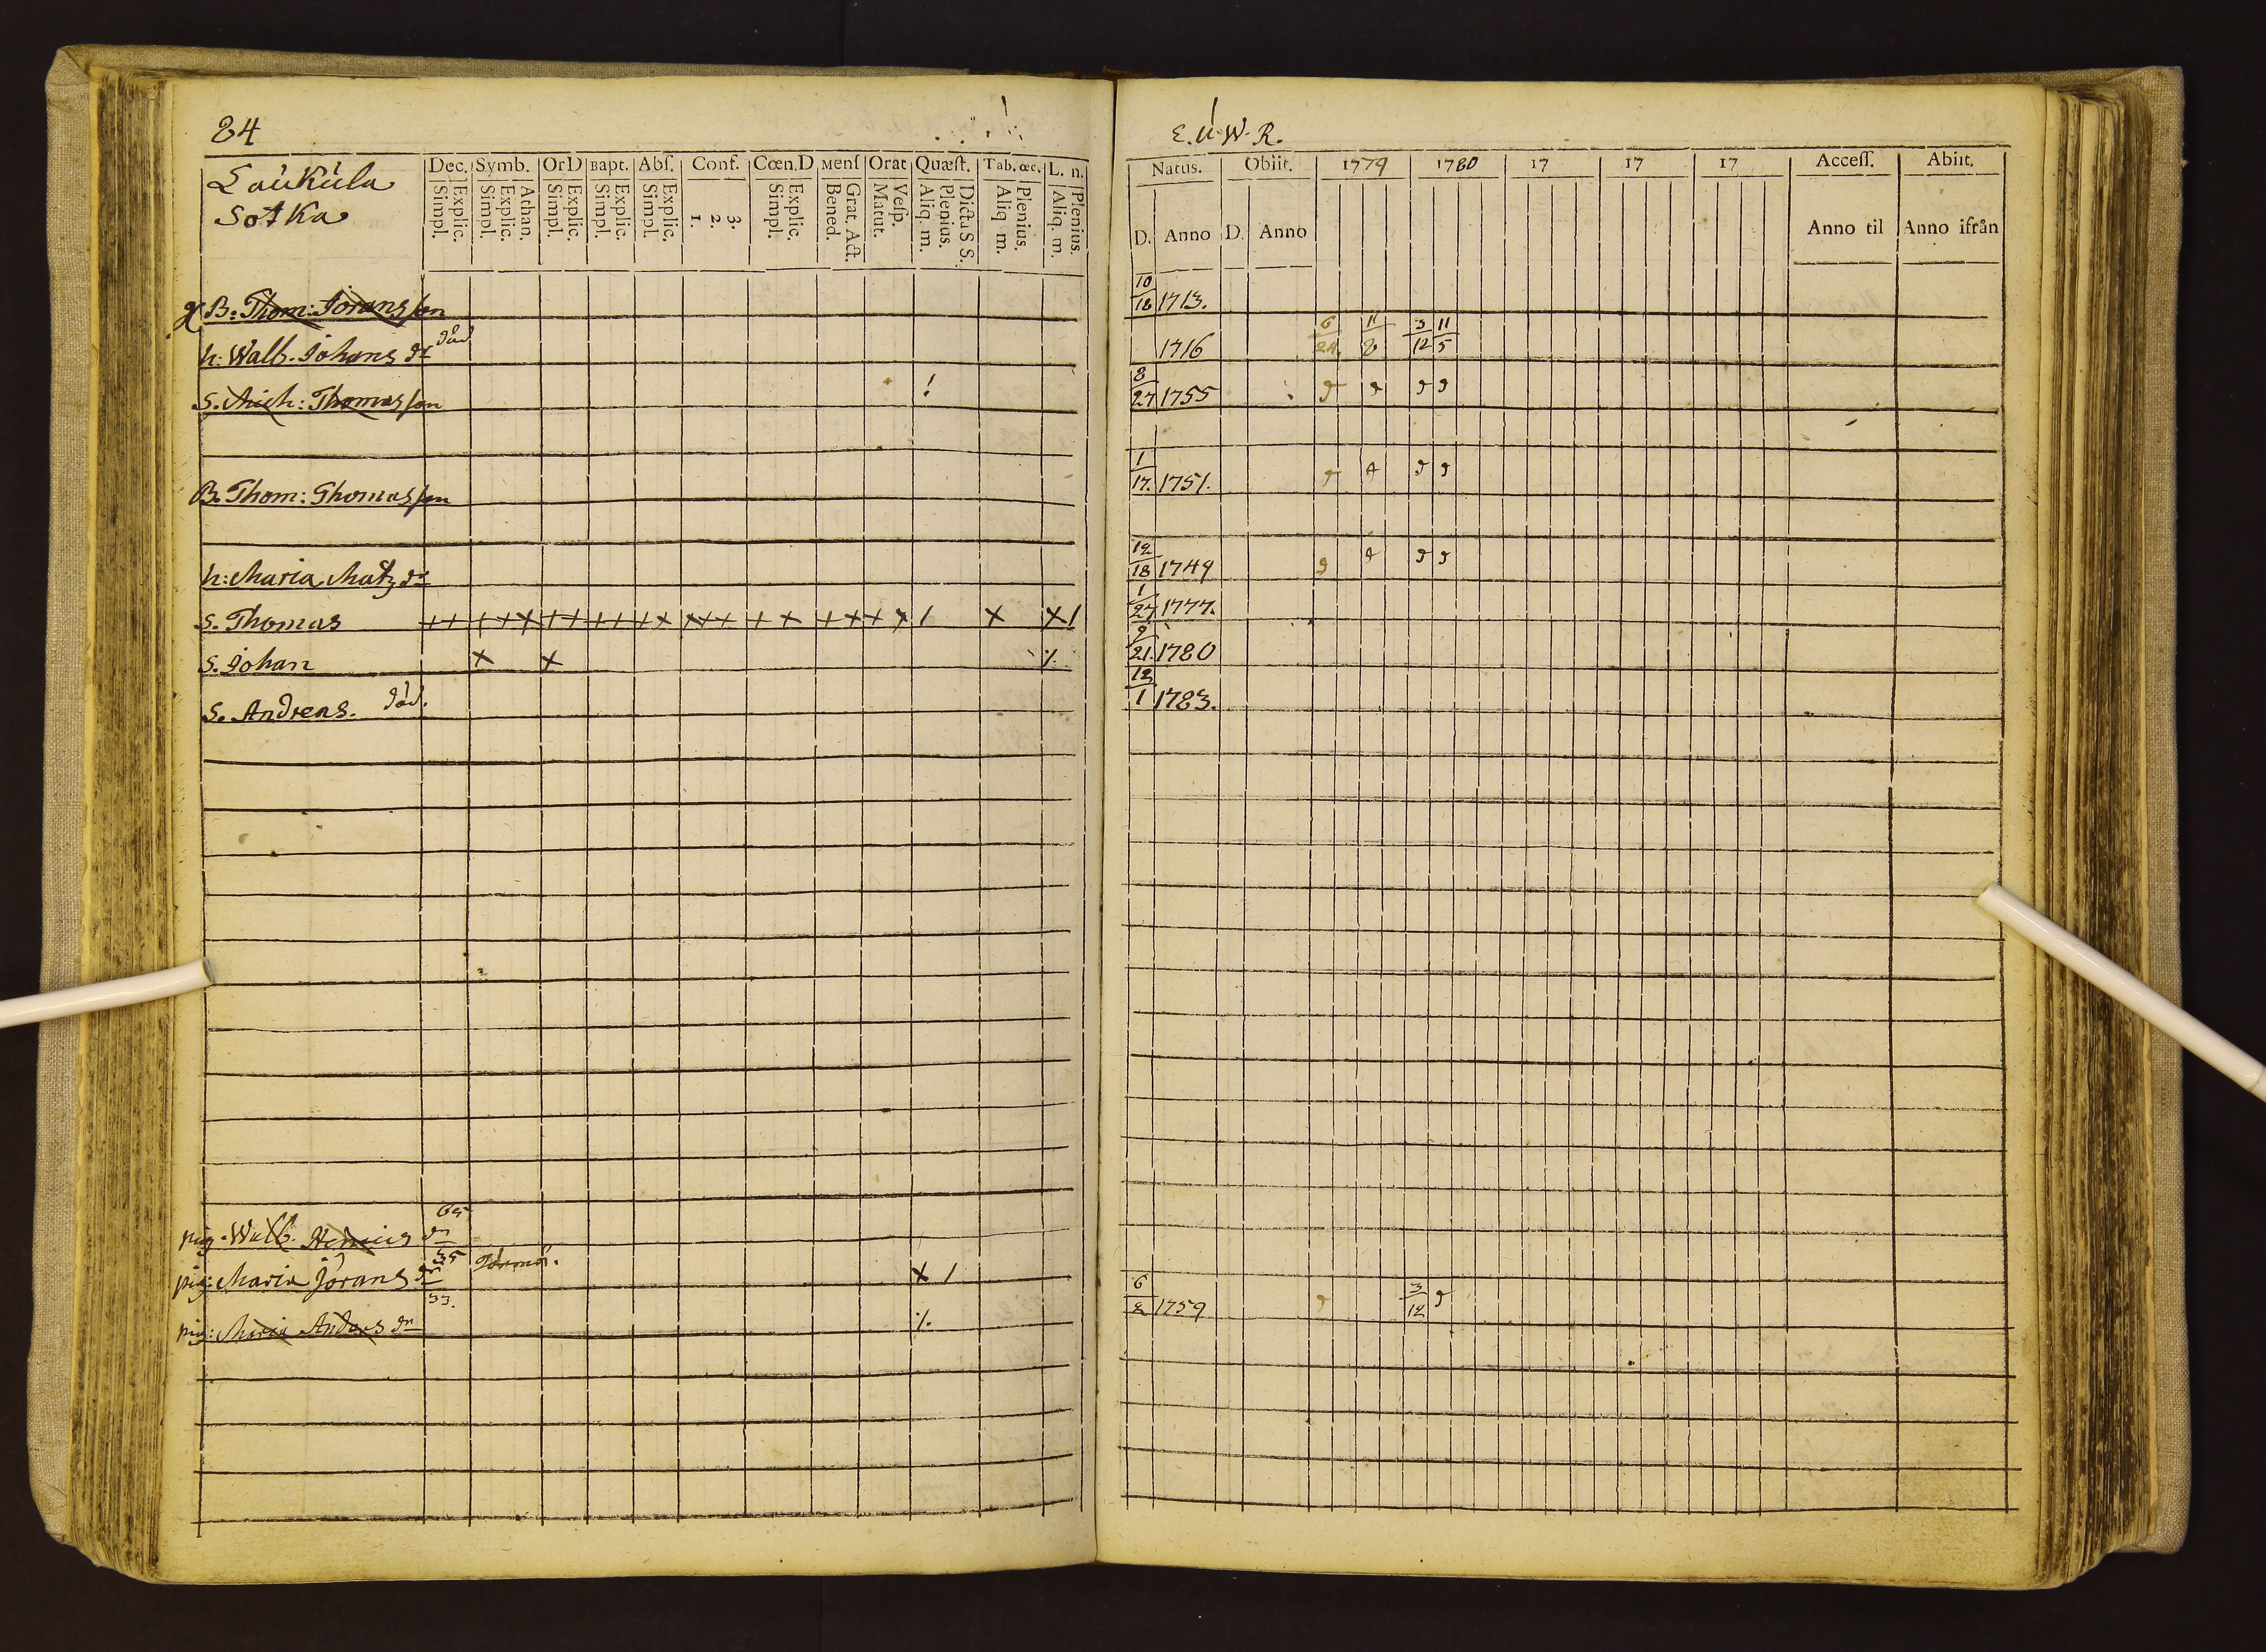 84
Laukula
Sotka
Dec. Symb. OrD Bapt. Abſ. Conf. Cœn.D Menſ Orat Quæſt. Tab.œc. L. n.
Explic. Simpl. Athan. Explic. Simpl. Explic. Simpl. Explic. Simpl. Explic. Simpl. 3. 2. 1. Explic. Simpl. Grat. Act. Bened. Veſp. Matut. Dicta S S. Plenius. Aliq. m. Plenius. Aliq m. Plenius. Aliq. m.
B. Thom: Joransson
h: Walb. Johans dr död
S. Mich: Thomasson
B. Thom: Thomasson
h: Maria Matz dr
S. Thomas
S. Johan
S. Andreas. död.
pig. Walb. Henrics dr 65
35
pig: Maria Jörans dr
33.
pig: Maria Anders dr
E. U. W. R.
Natus. Obiit. 1779 1780 17 17 17 Acceſſ. Abiit.
D. Anno D. Anno Anno til Anno ifrån
10
18 1713.
1716 6 11 3 11
24 8 12 5
8
27 1755
1
17. 1751.
12
18 1749
1
27 1777.
9
21. 1780
12
1 1783.
6
2 1759 3
12